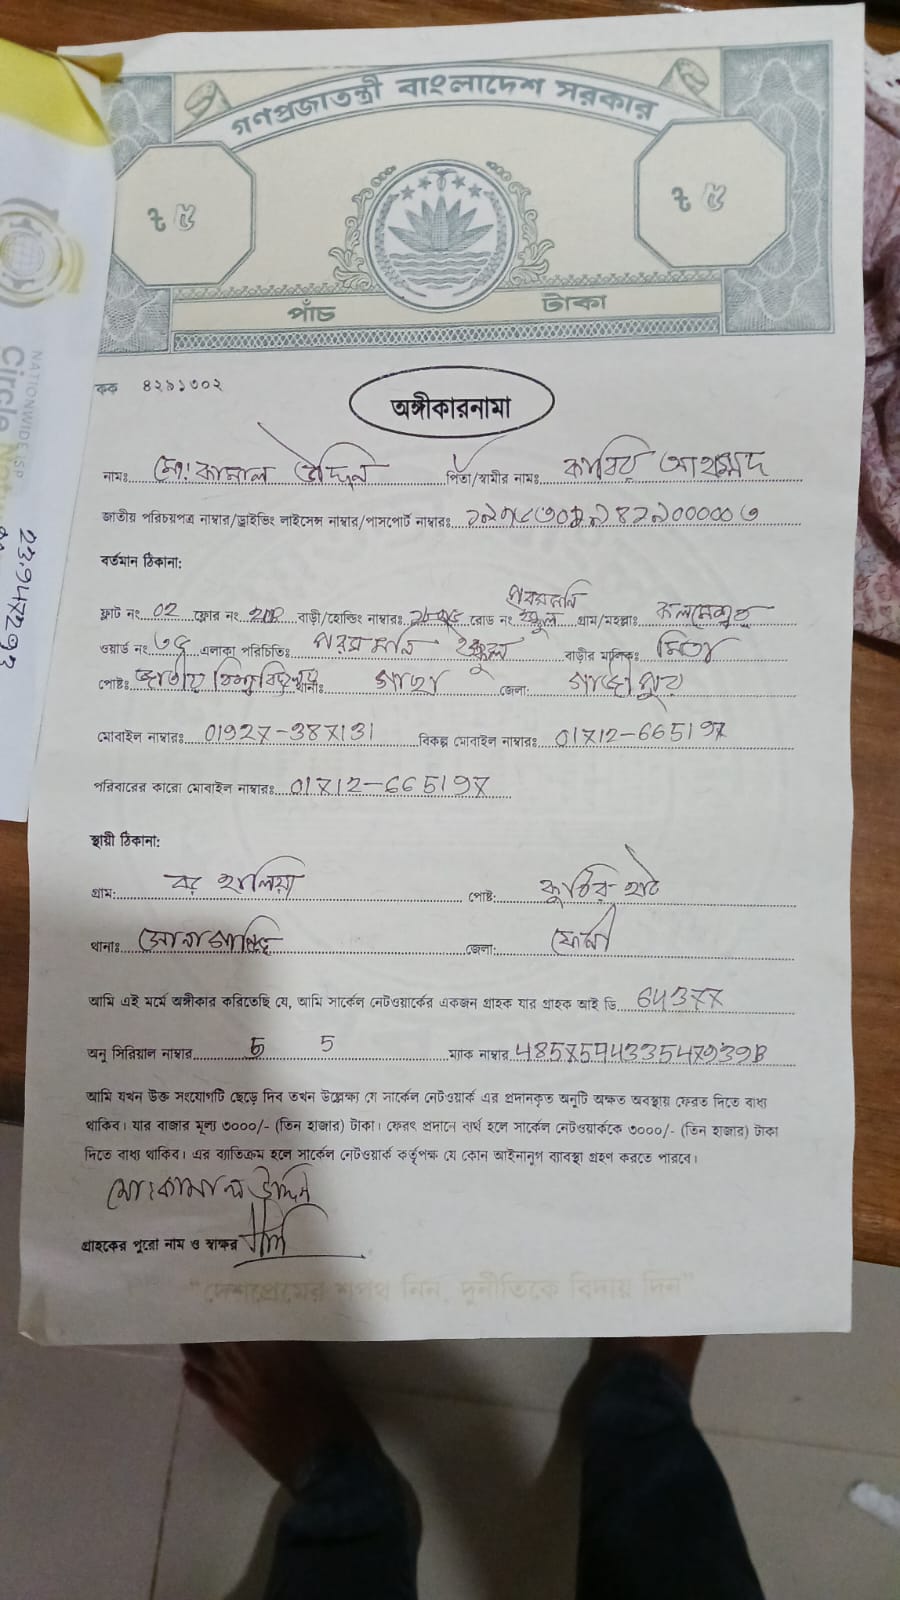 গণপ্রজাতন্ত্রী বাংলাদেশ সরকার
৳ ৫
৳ ৫
পাঁচ টাকা
কক ৪২৯১৩০২
অঙ্গীকারনামা
নামঃ মো: কামাল উদ্দিন পিতা/স্বামীর নামঃ কবির আহম্মদ
জাতীয় পরিচয়পত্র নাম্বার/ড্রাইভিং লাইসেন্স নাম্বার/পাসপোর্ট নাম্বারঃ
বর্তমান ঠিকানা:
ফ্লাট নং 02 ফ্লোর নং বাড়ী/হোল্ডিং নাম্বারঃ রোড নং স্কুল গ্রাম/মহল্লাঃ কলমেশ্বর
ওয়ার্ড নং ৩৫ এলাকা পরিচিতিঃ স্কুল বাড়ীর মালিকঃ মিতা
পোষ্টঃ জাতীয় বিশ্ববিদ্যালয় থানাঃ গাছা জেলা: গাজীপুর
মোবাইল নাম্বারঃ 01927-387131 বিকল্প মোবাইল নাম্বারঃ 01712-665197
পরিবারের কারো মোবাইল নাম্বারঃ 01712-665197
স্থায়ী ঠিকানা:
গ্রাম: বর হালিয়া পোষ্ট: কুঠির হাট
থানাঃ সোনাগাজী জেলা: ফেনী
আমি এই মর্মে অঙ্গীকার করিতেছি যে, আমি সার্কেল নেটওয়ার্কের একজন গ্রাহক যার গ্রাহক আই ডি 64377
অনু সিরিয়াল নাম্বার 5 5 ম্যাক নাম্বার 485759433547939B
আমি যখন উক্ত সংযোগটি ছেড়ে দিব তখন উল্লেক্ষ্য যে সার্কেল নেটওয়ার্ক এর প্রদানকৃত অনুটি অক্ষত অবস্থায় ফেরত দিতে বাধ্য
থাকিব। যার বাজার মূল্য ৩০০০/- (তিন হাজার) টাকা। ফেরৎ প্রদানে ব্যর্থ হলে সার্কেল নেটওয়ার্ককে ৩০০০/- (তিন হাজার) টাকা
দিতে বাধ্য থাকিব। এর ব্যতিক্রম হলে সার্কেল নেটওয়ার্ক কর্তৃপক্ষ যে কোন আইনানুগ ব্যাবস্থা গ্রহণ করতে পারবে।
মো: কামাল উদ্দিন
গ্রাহকের পুরো নাম ও স্বাক্ষর
"দেশপ্রেমের শপথ নিন, দুর্নীতিকে বিদায় দিন"
NATIONWIDE ISP
Circle
23.947293